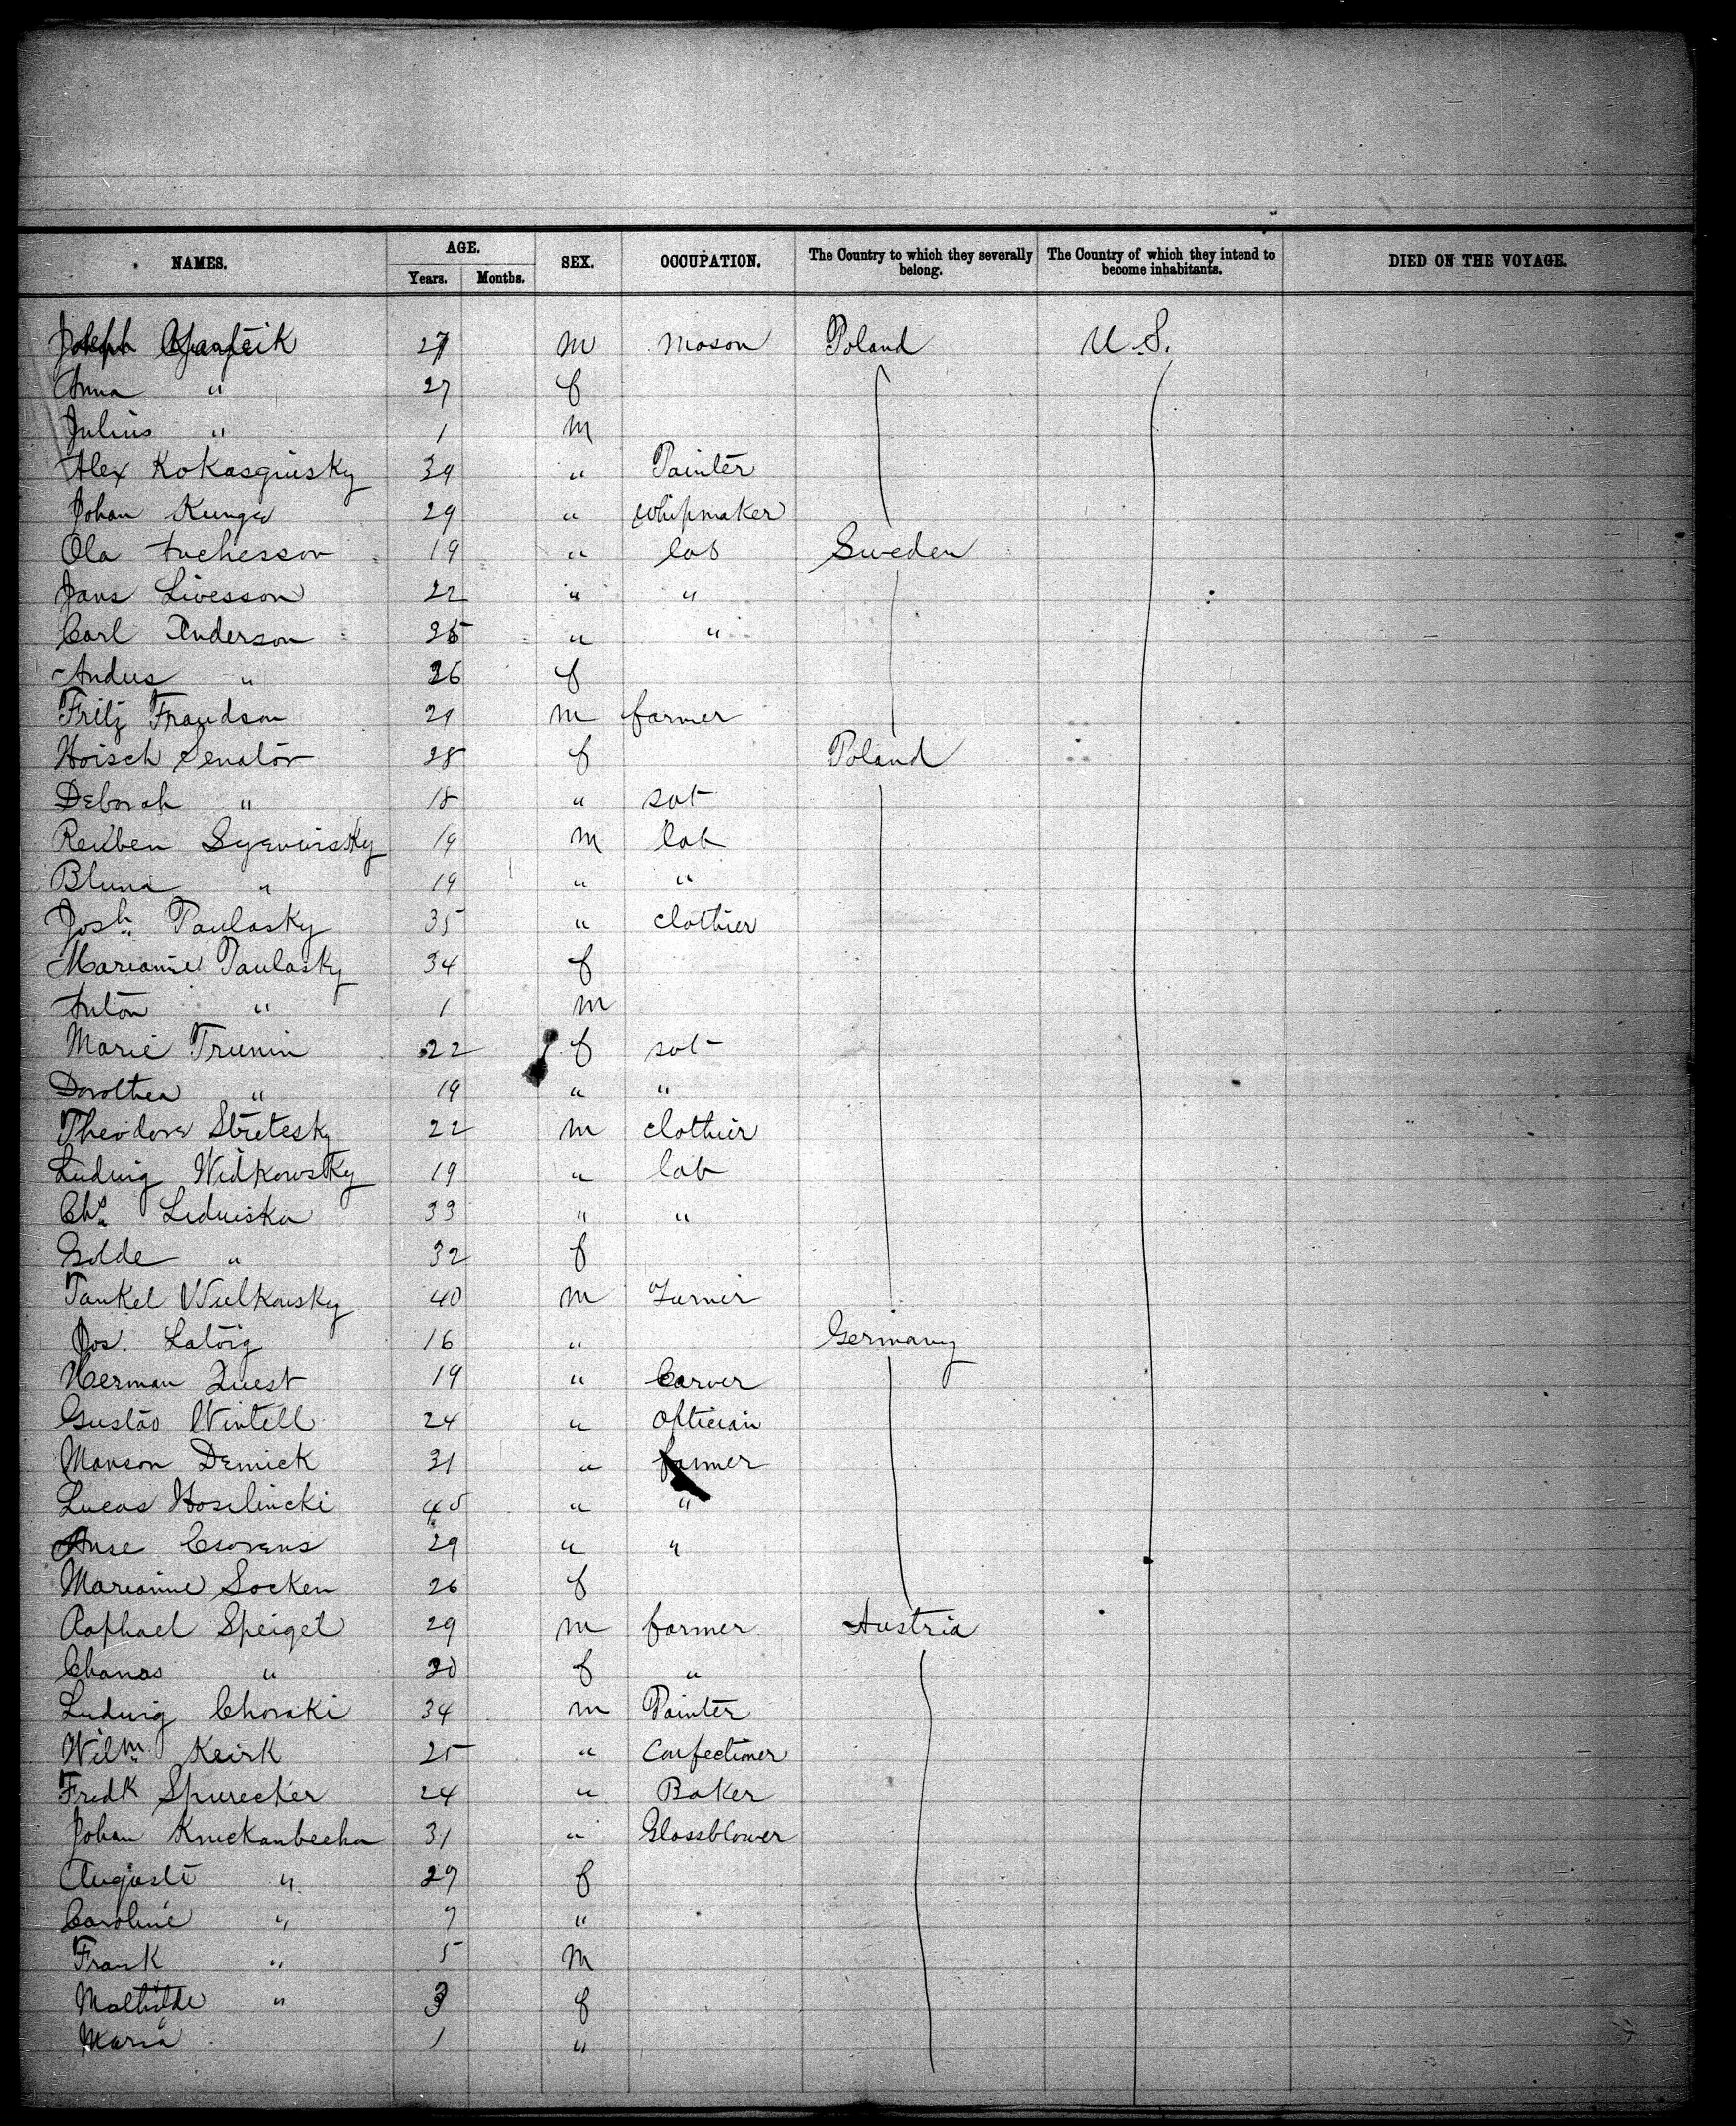 NAMES. AGE. SEX. OCCUPATION. The Country to which they severally belong. The Country of which they intend to become inhabitants. DIED ON THE VOYAGE.
Years. Months.
Joseph 27 m Mason Poland U.S.
Anna " 27 f
Julius " 1 m
Alex Kokasginsky 39 " Painter
Johan Kunge 29 " Whipmaker
Ola 19 " lab Sweden
Jans Livesson 22 " "
Carl Anderson 25 " "
Andus " 26 f
Fritz Frandson 21 m farmer
Hoisch Senator 28 f Poland
Deborah " 18 " sat
Reuben 19 m lab
Bluma " 19 " "
Josh Paulasky 35 " clothier
Marianne Paulasky 34 f
Anton " 1 m
Marie Trunin 22 f sat
Dorothea " 19 " "
Theodore Stretesky 22 m clothier
Ludwig Widkowsky 19 " lab
Chs Liduiska 33 " "
Golde " 32 f
Tankel Wulkowsky 40 m Turner
Jos. Latoig 16 " Germany
Herman Zuest 19 " Carver
Gustav Wintell 24 " Optician
Manson Demick 31 " farmer
Lucas Hoselincki 45 " "
29 " "
Marianne Socken 26 f
Raphael Speigel 29 m farmer Austria
Chanas " 20 f "
Ludwig Choraki 34 m Painter
Wilm Keirk 25 " Confectioner
Fredk Spurecher 24 " Baker
Johan Knickanbecha 31 " Glassblower
Auguste " 27 f
Caroline " 7 "
Frank " 5 m
Mathilde " 3 f
Maria 1 "